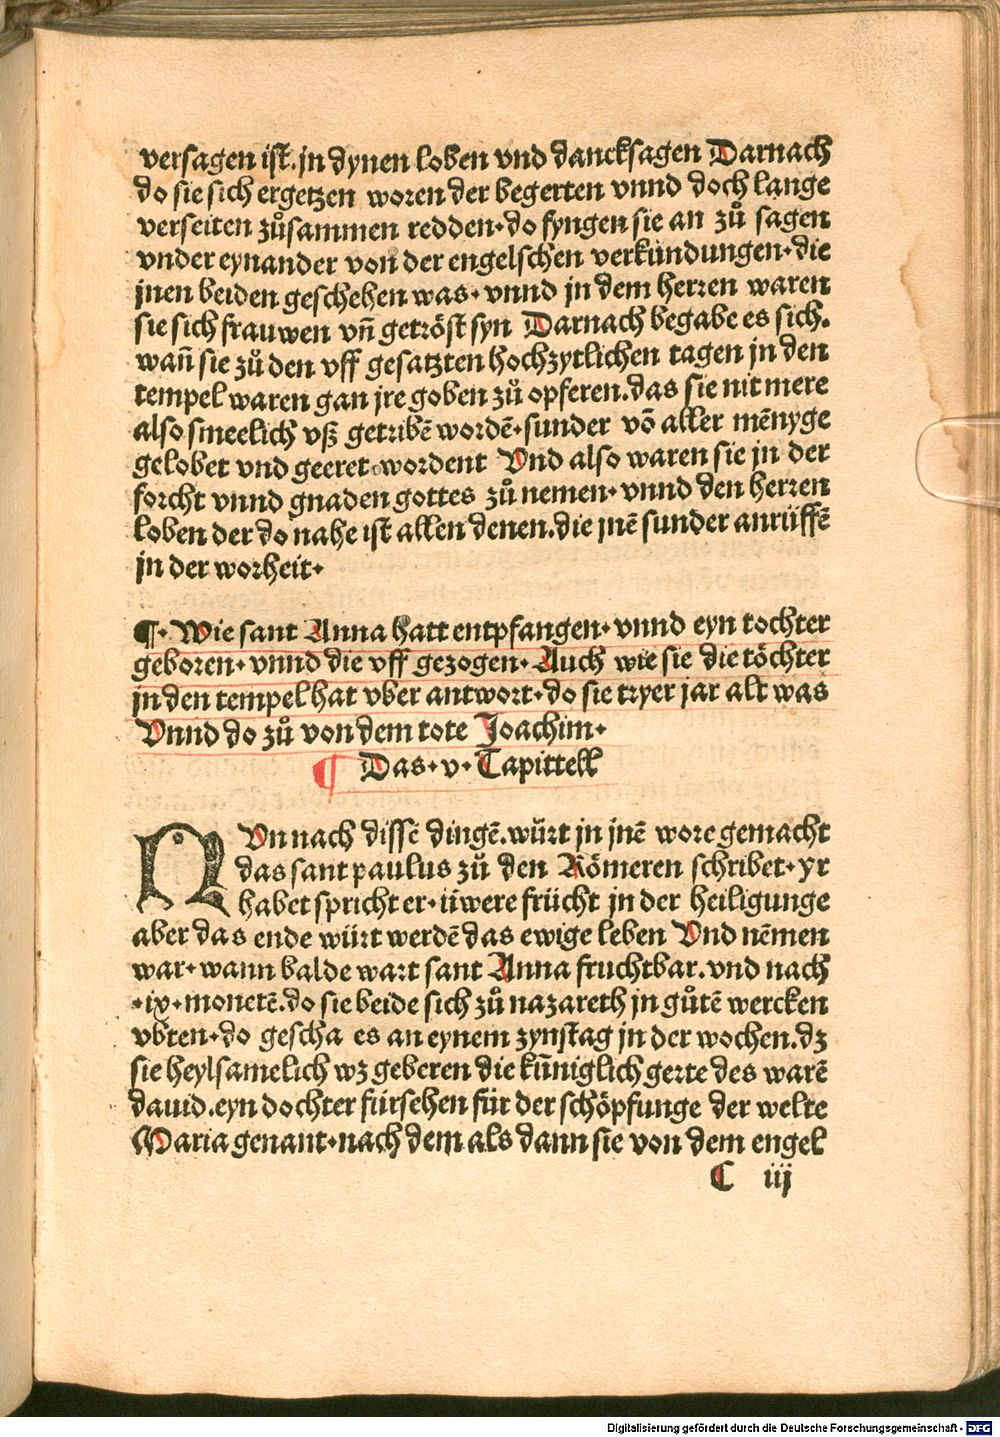 versagen ist. jn dynen loben vnd dancksagen Darnach
do sie sich ergetzen woren der begerten vnnd doch lange
verseiten zůsammen redden. do fyngen sie an zů sagen
vnder eynander von der engelschen verkündungen. die
jnen beiden geschehen was. vnnd jn dem herren waren
sie sich frauwen vn̄ getröst syn Darnach begabe es sich.
wan̄ sie zů den vff gesatzten hochzytlichen tagen jn den
tempel waren gan jre goben zů opferen. das sie nit mere
also smeelich vß getribē wordē. sunder vō aller mēnyge
gelobet vnd geeret wordent Vnd also waren sie jn der
forcht vnnd gnaden gottes zů nemen. vnnd den herren
loben der do nahe ist allen denen. die jnē sunder anrüffē
jn der worheit.
¶. Wie sant Anna hatt entpfangen. vnnd eyn tochter
geboren. vnnd die vff gezogen. Auch wie sie die töchter
jn den tempel hat vber antwort. do sie tryer jar alt was
Vnnd do zů von dem tote Joachim.
¶ Das. v. Capittell
NVn nach dissē dingē. würt jn jnē wore gemacht
das sant paulus zů den Römeren schribet. yr
habet spricht er. üwere frücht jn der heiligunge
aber das ende würt werdē das ewige leben Vnd nēmen
war. wann balde wart sant Anna fruchtbar. vnd nach
.ix. monetē. do sie beide sich zů nazareth jn gůtē wercken
vbten. do gescha es an eynem zynstag jn der wochen. dz
sie heylsamelich wz geberen die kün̄iglich gerte des warē
dauid. eyn dochter fürsehen für der schöpfunge der welte
Maria genant. nach dem als dann sie von dem engel
C iij
Digitalisierung gefördert durch die Deutsche Forschungsgemeinschaft - DFG